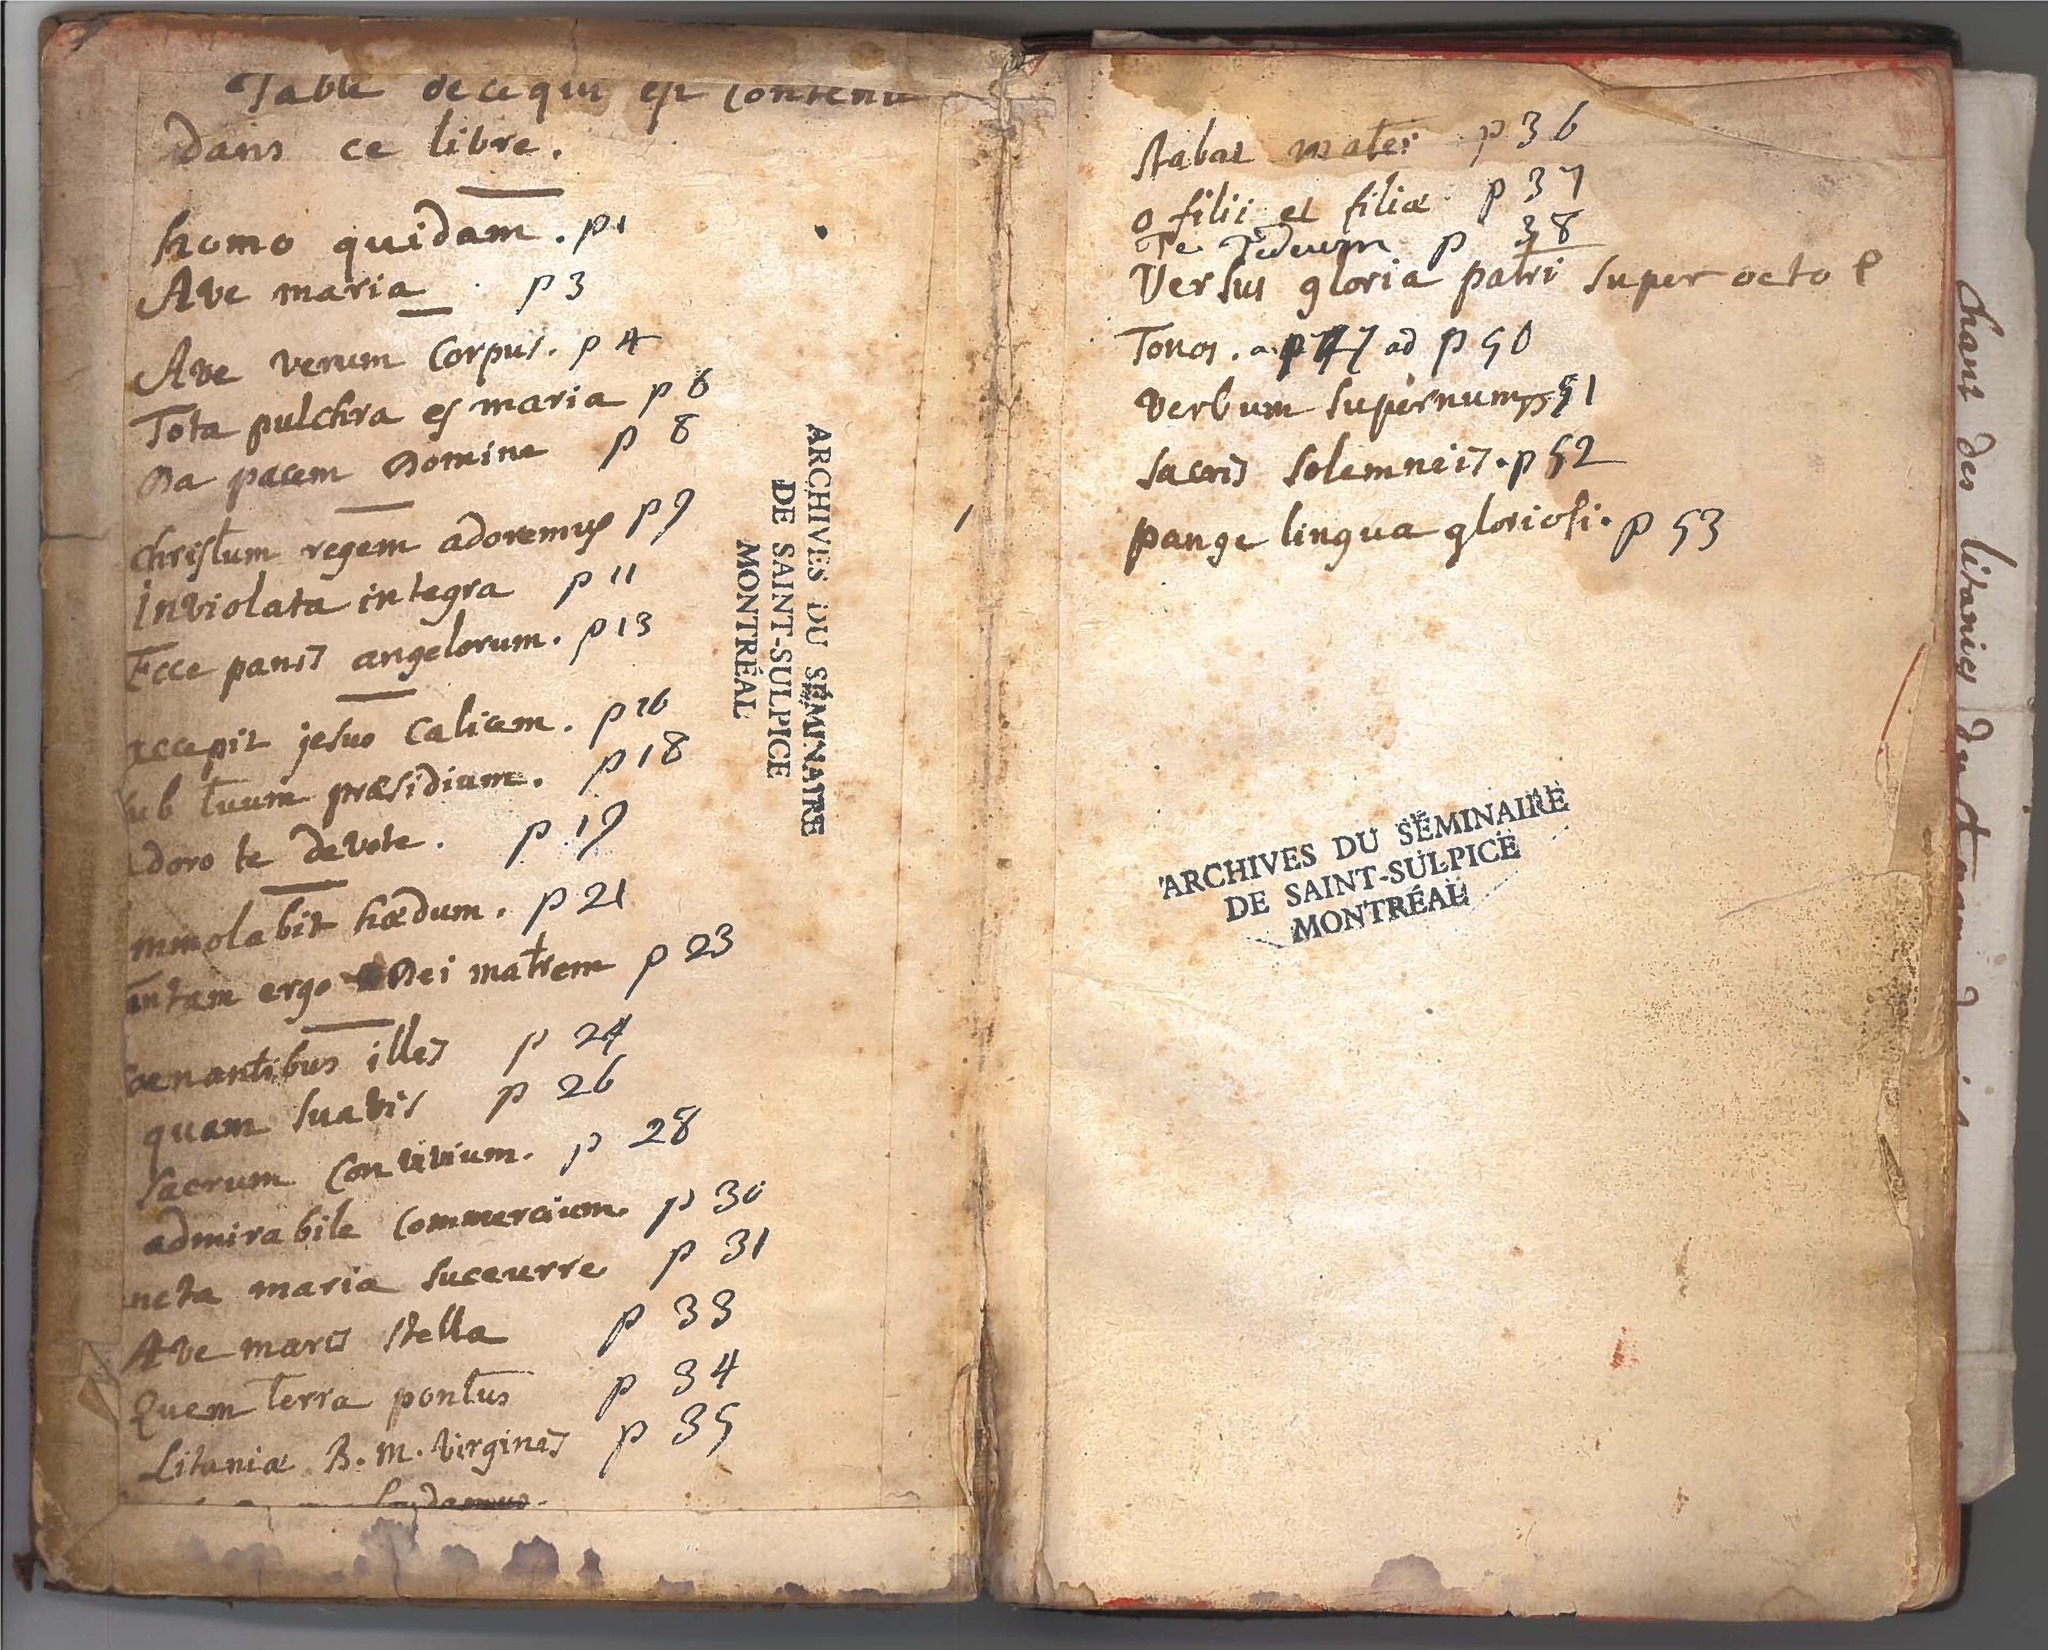 Table de ce qui est contenu
dans ce libre.
homo quidam. p1
Ave maria p 3
Ave verum Corpus. p 4
Tota pulchra es maria p 6
Da pacem Domine p 8
Christum regem adoremus p 9
Inviolata integra p 11
Ecce panis angelorum. p 13
accepit jesus calicem. p 16
sub tuum præsidium. p 18
doro te devote. p 19
mmolabit hædum. p 21
antam ergo Dei matrem p 23
Coenantibus illis p 24
quam suavis p 26
sacrum Convivium. p 28
admirabile Commercium. p 30
ncta maria succurre p 31
Ave maris stella p 33
Quem terra pontus p 34
Litaniæ B. M. Virginis p 35
laudamus.
ARCHIVES DU SÉMINAIRE
DE SAINT-SULPICE
MONTRÉAL
stabat mater p 36
o filii et filiæ p 37
Te Deum p 38
Versus gloria patri super octo
Tonos. a p 47 ad p 50
Verbum supernum p 51
sacris solemneis. p 52
pange lingua gloriosi. p 53
ARCHIVES DU SÉMINAIRE
DE SAINT-SULPICE
MONTRÉAL
chant des litanies du